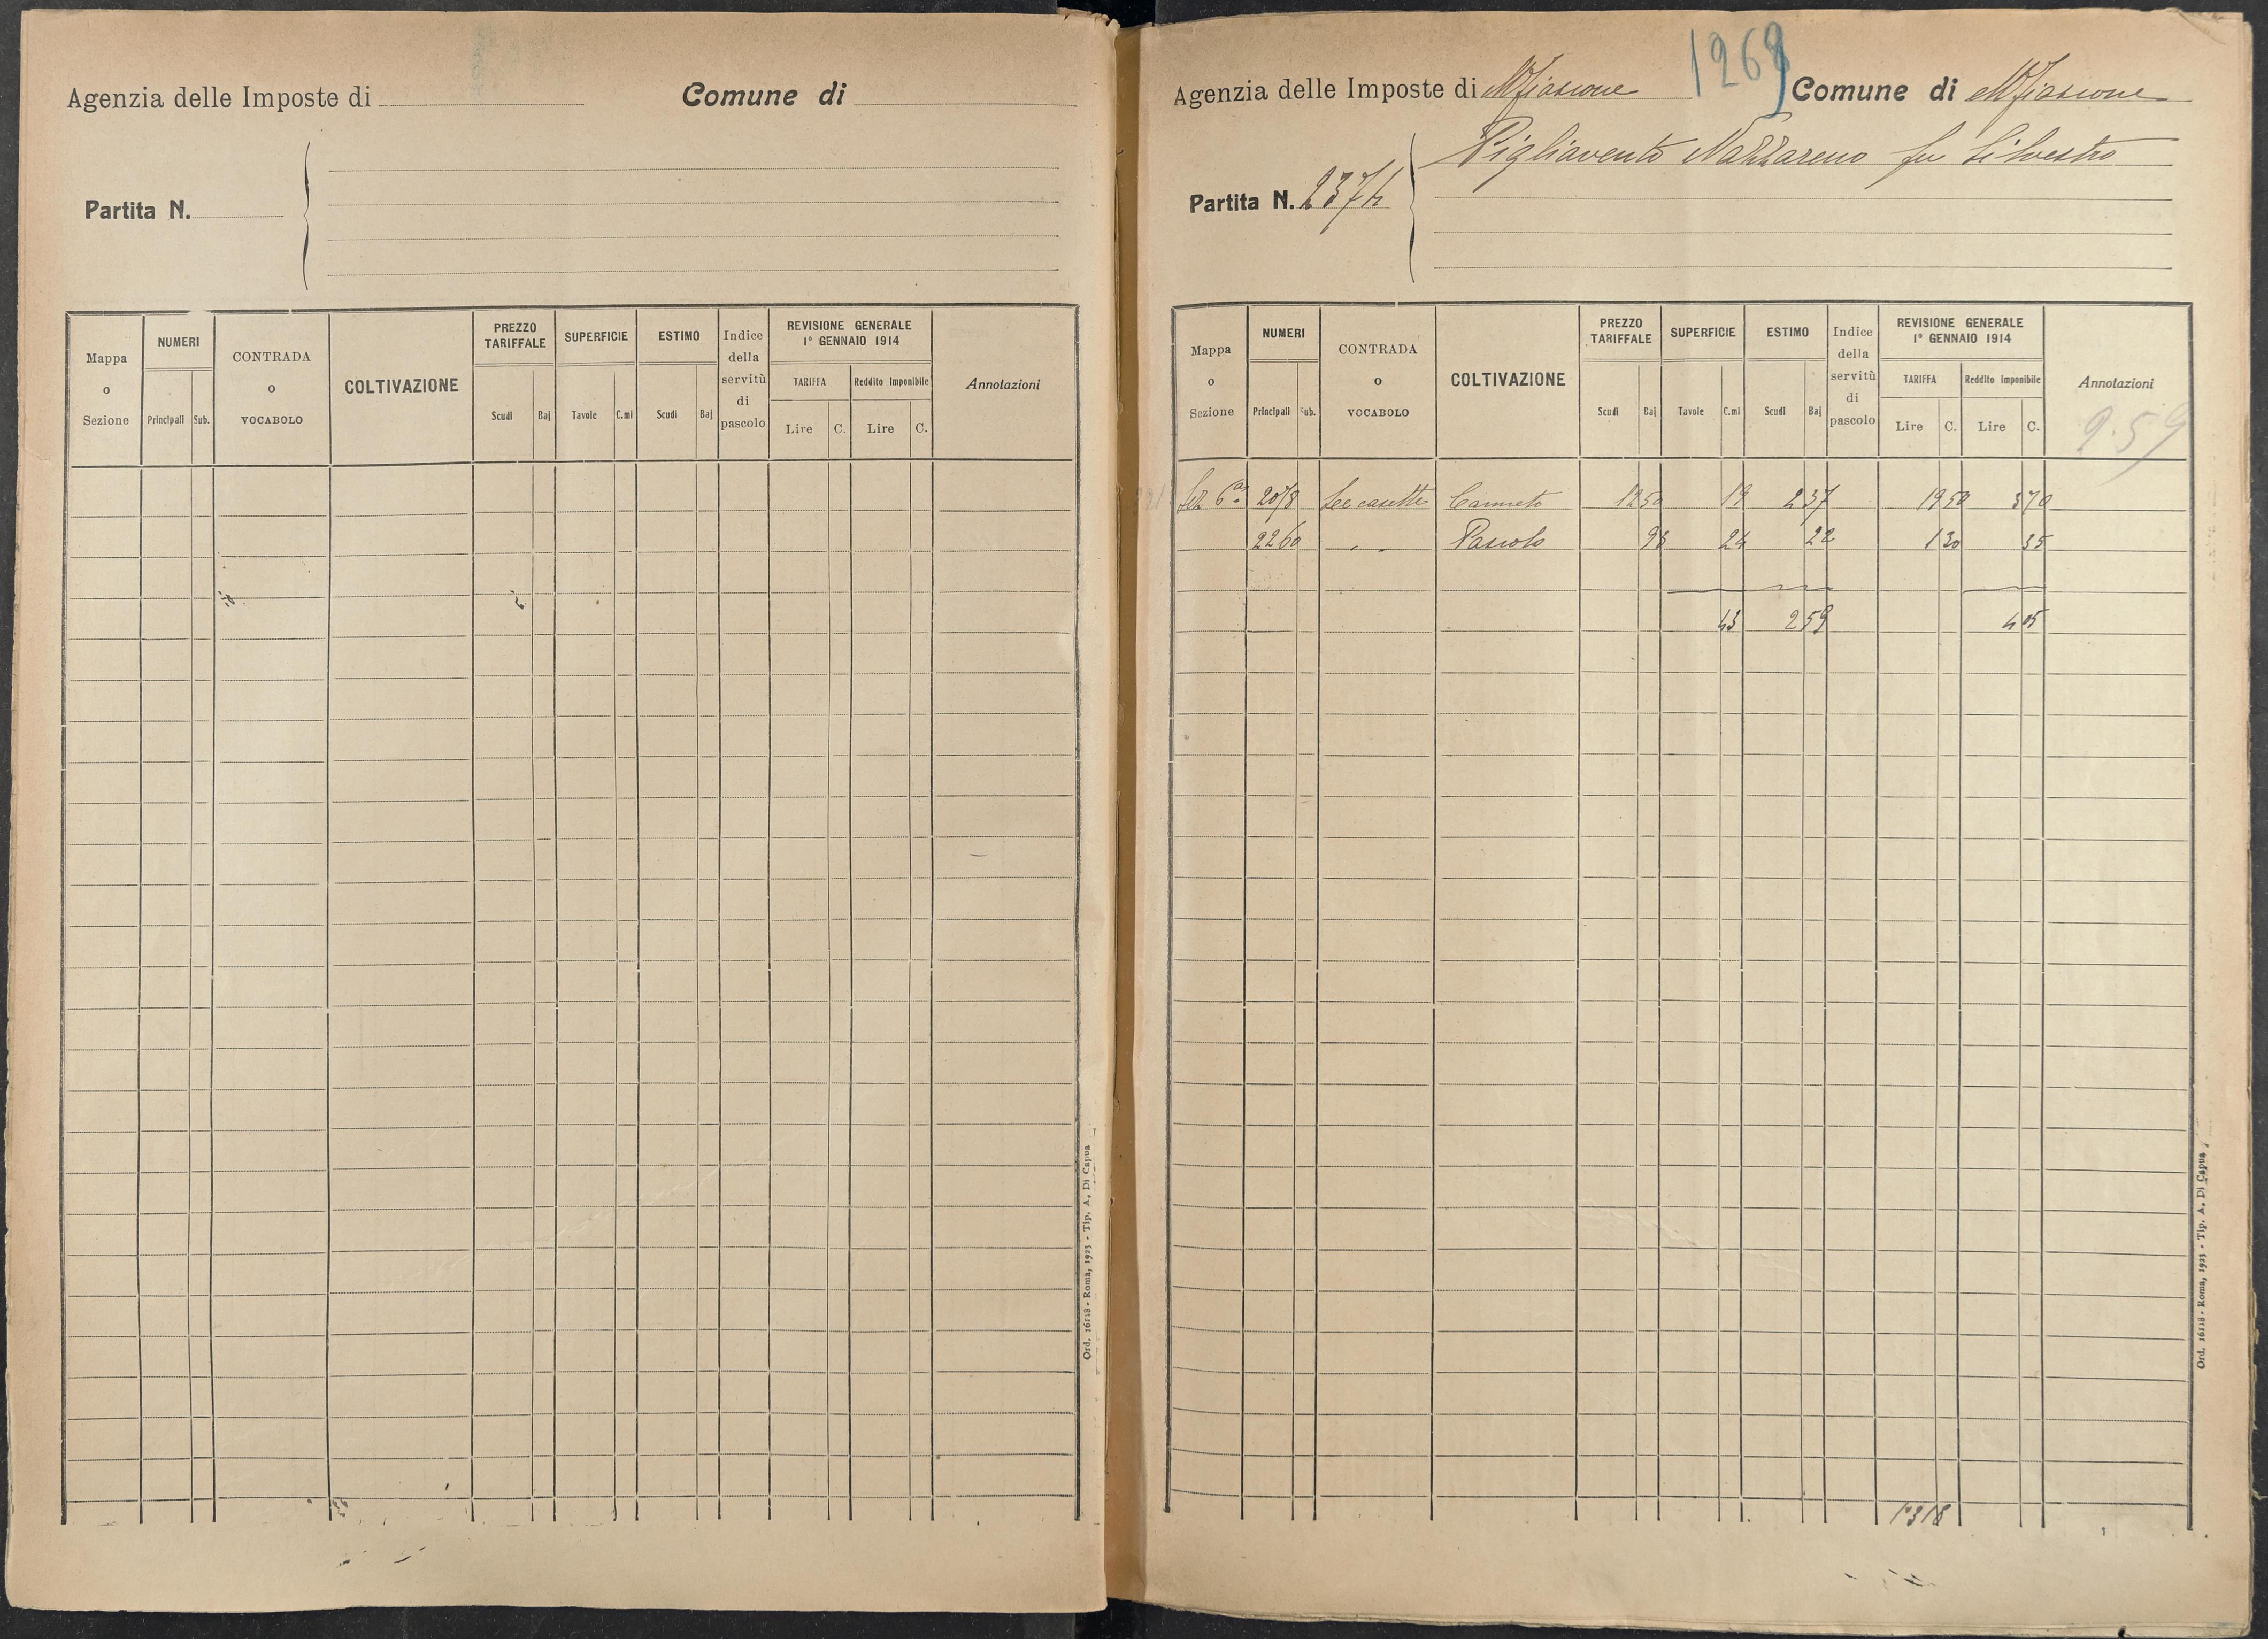 Agenzia delle Imposte di
Comune di
Partita N.
Mappa o Sezione
NUMERI
Principali Sub.
CONTRADA o VOCABOLO
COLTIVAZIONE
PREZZO TARIFFALE
Scudi Baj
SUPERFICIE
Tavole C.mi
ESTIMO
Scudi Baj
Indice della servitù di pascolo
REVISIONE GENERALE 1° GENNAIO 1914
TARIFFA
Lire C.
Reddito Imponibile
Lire C.
Annotazioni
Ord. 16118 - Roma, 1923 - Tip. A. Di Capua
1269
Agenzia delle Imposte di Mfiascone
Comune di Mfiascone
Partita N. 2374
Pigliavento Nazzareno fu Silvestro
Mappa o Sezione
NUMERI
Principali Sub.
CONTRADA o VOCABOLO
COLTIVAZIONE
PREZZO TARIFFALE
Scudi Baj
SUPERFICIE
Tavole C.mi
ESTIMO
Scudi Baj
Indice della servitù di pascolo
REVISIONE GENERALE 1° GENNAIO 1914
TARIFFA
Lire C.
Reddito Imponibile
Lire C.
Annotazioni
9.59
Sez 6a 2078 Le casette Canneto 12 50 19 2 37 19 50 3 70
2260 " " Pascolo 93 24 22 1 30 35
43 2 59 4 05
1318
Ord. 16118 - Roma, 1923 - Tip. A. Di Capua